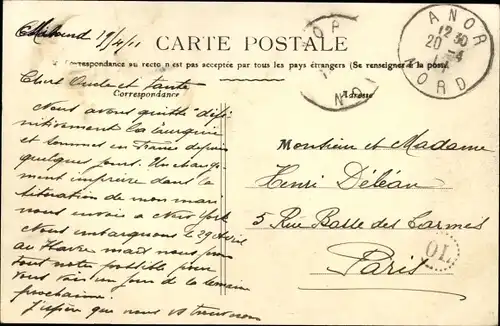 19/4/11
CARTE POSTALE
La Correspondance au recto n'est pas acceptée par tous les pays étrangers (Se renseigner à la poste)
Correspondance
Adresse
ANOR
12 30
20 - 4
11
NORD
OR
NO
Chers Oncle et tante
Nous avons quitté défi
nitivement la Turquie
et sommes en France depuis
quelques jours. Un change
ment imprévu dans la
situation de mon mari
nous envoie à New York
Nous embarquons le 29 Avril
au Havre mais nous ferons
tout notre possible pour
vous voir un jour de la semaine
prochaine.
J'espère que nous vs trouverons
Monsieur et Madame
Henri Déléan
5 Rue Basse des Carmes
Paris
OL